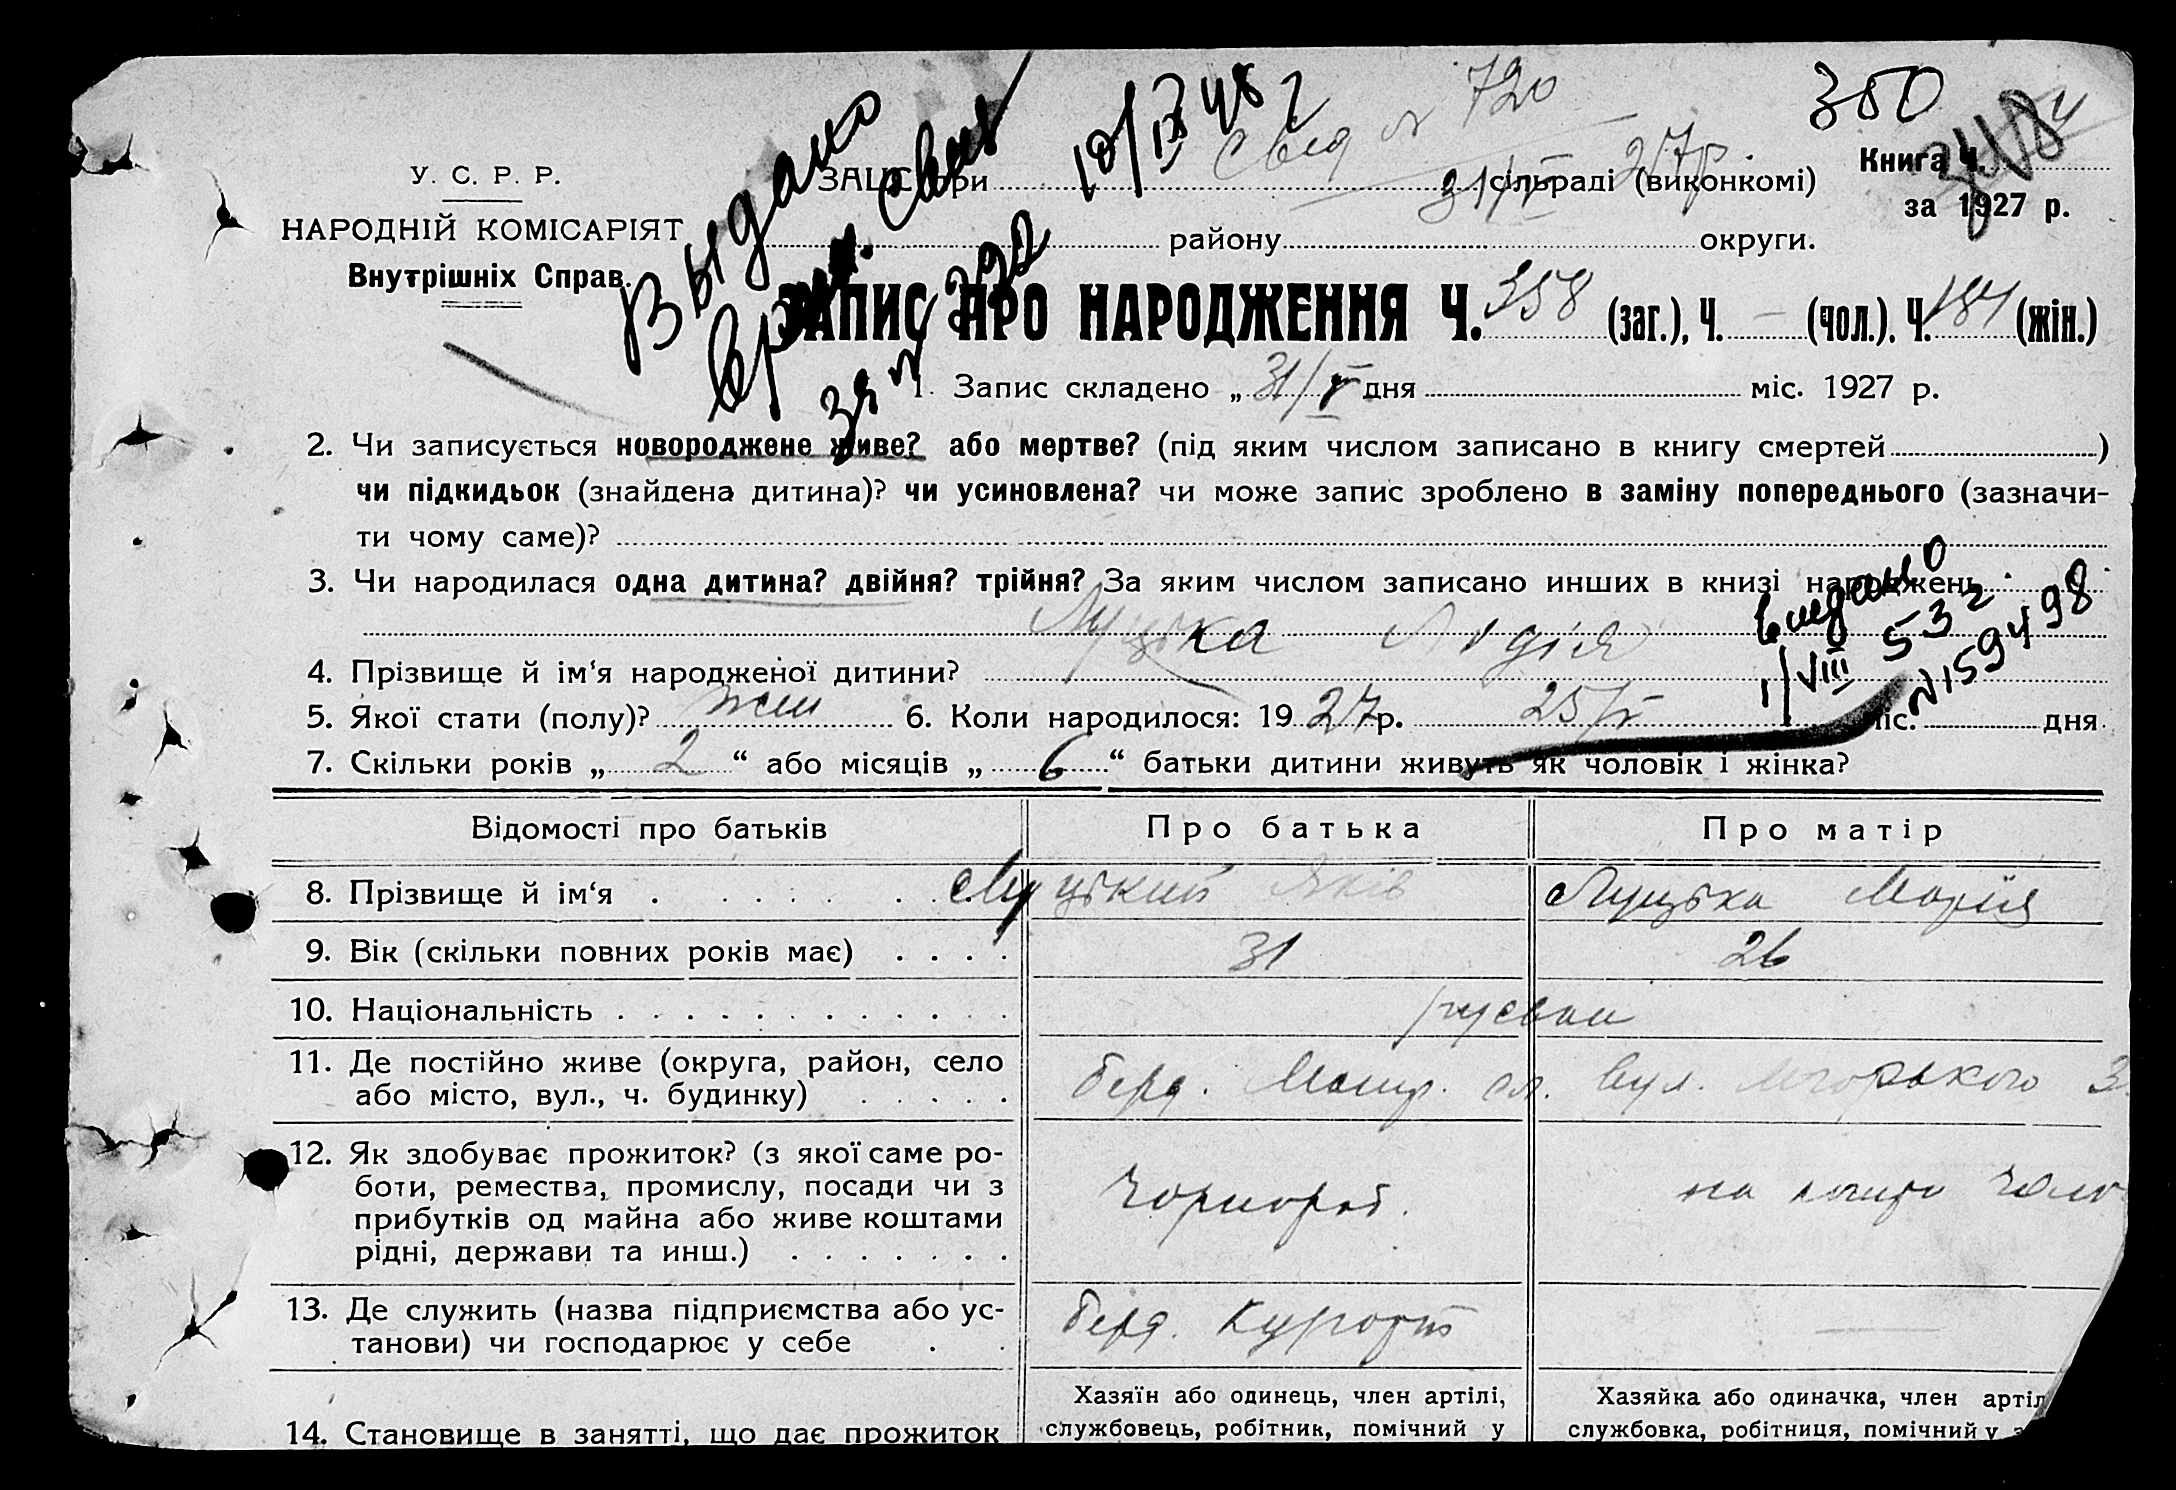 350
Выдано
врем. свид.
за № 292
10/IX 48 г
Свид № 720
31/V 27р.
У. С. Р. Р.
НАРОДНІЙ КОМІСАРІЯТ
Внутрішніх Справ.
ЗАЦС при сільраді (виконкомі)
району округи.
Книга Ч.
за 1927 р.
ЗАПИС ПРО НАРОДЖЕННЯ Ч. 358 (заг.), Ч. — (чол.), Ч. 184 (жін.)
1. Запис складено „ 31/V дня міс. 1927 р.
2. Чи записується новороджене живе? або мертве? (під яким числом записано в книгу смертей )
чи підкидьок (знайдена дитина)? чи усиновлена? чи може запис зроблено в заміну попереднього (зазначи-
ти чому саме)?
3. Чи народилася одна дитина? двійня? трійня? За яким числом записано инших в книзі народжень
видано
1/VIII 53 г
№ 159498
4. Прізвище й ім‘я народженої дитини? Луцька Лідія
5. Якої стати (полу)? жін 6. Коли народилося: 19 27 р. 25/V міс. дня
7. Скільки років „ 2 “ або місяців „ 6 “ батьки дитини живуть як чоловік і жінка?
Відомості про батьків Про батька Про матір
8. Прізвище й ім‘я Луцький Яків Луцька Марія
9. Вік (скільки повних років має) 31 26
10. Національність
11. Де постійно живе (округа, район, село
або місто, вул., ч. будинку)
берд. вул. Горького 3
12. Як здобуває прожиток? (з якої саме ро-
боти, ремества, промислу, посади чи з
прибутків од майна або живе коштами
рідні, держави та инш.)
Чорнороб. на
13. Де служить (назва підприємства або ус-
танови) чи господарює у себе
Берд. Курорт —
14. Становище в занятті, що дає прожиток
Хазяїн або одинець, член артілі,
службовець, робітник, помічний у
Хазяйка або одиначка, член артіл
службовка, робітниця, помічний у з